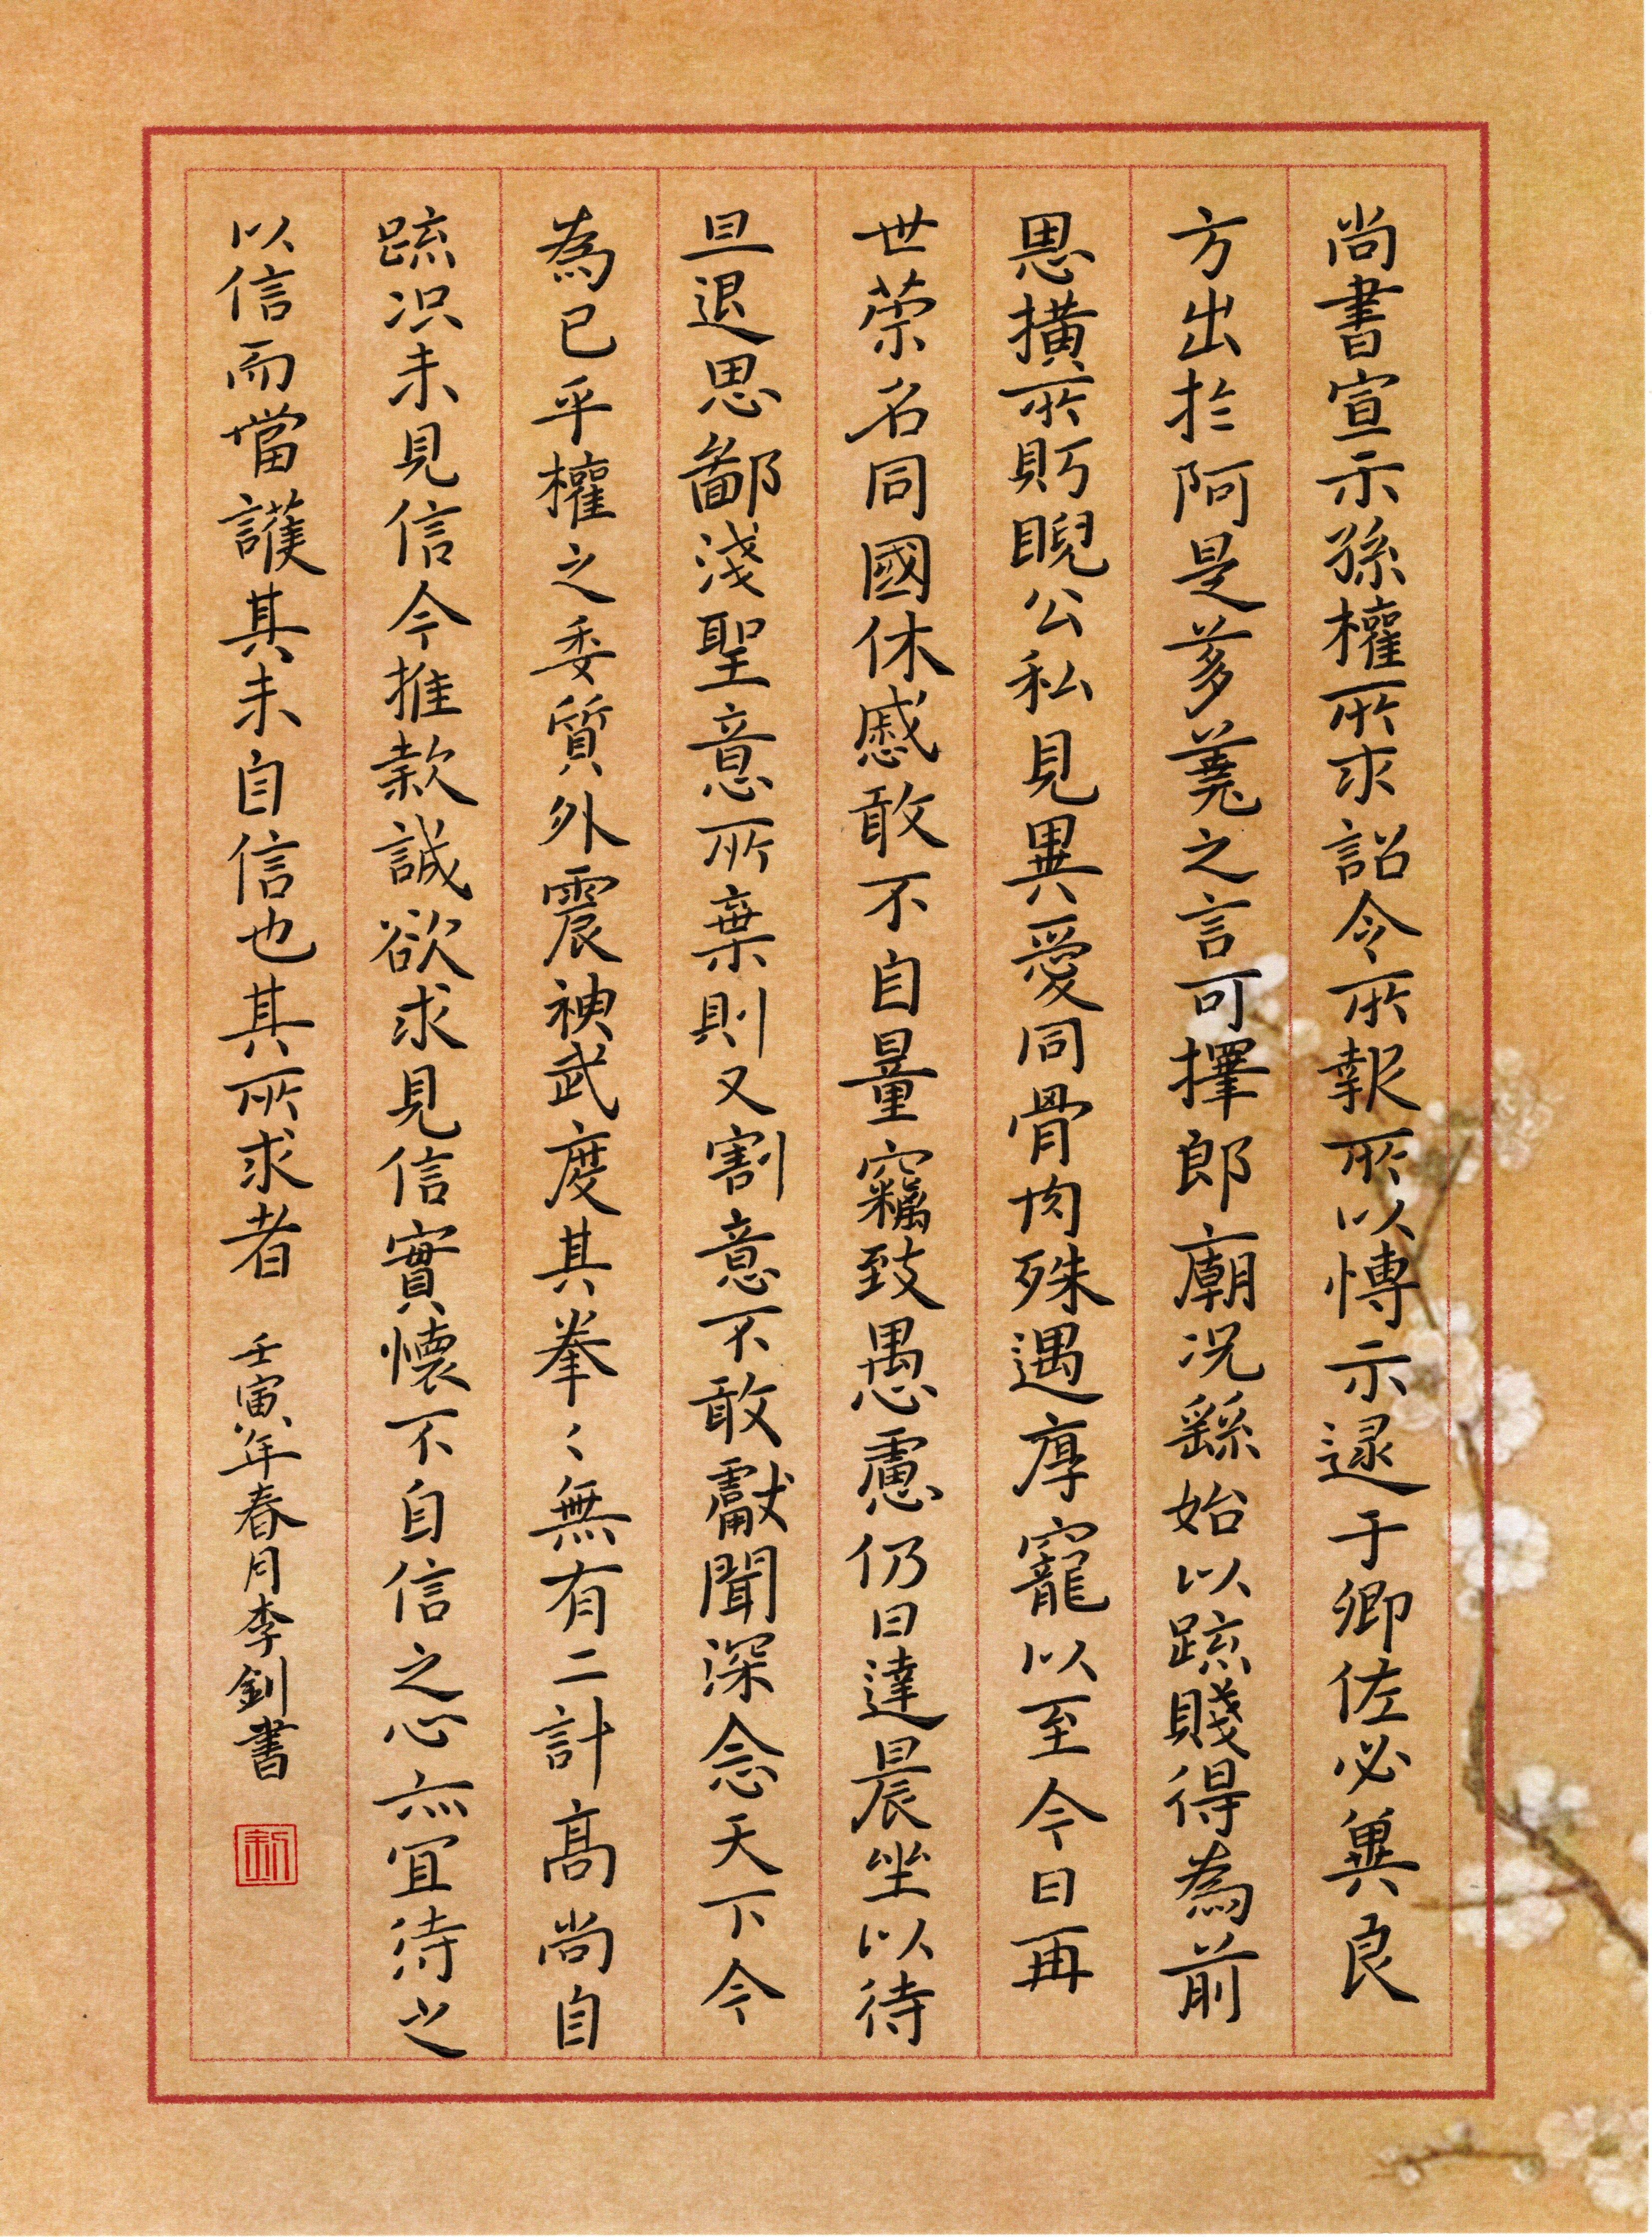 尚書宣示孫權所求詔令所報所以博示逮于卿佐必冀良
方出於阿是芻蕘之言可擇郎廟况繇始以疏賤得為前
恩橫所貯睨公私見異愛同骨肉殊遇厚寵以至今日再
世榮名同國休慼敢不自量竊致愚慮仍日達晨坐以待
旦退思鄙淺聖意所棄則又割意不敢獻聞深念天下今
為已平權之委質外震神武度其拳〻無有二計高尚自
疏况未見信今推款誠欲求見信實懷不自信之心亦宜待之
以信而當護其未自信也其所求者
壬寅年春月李釗書
釗